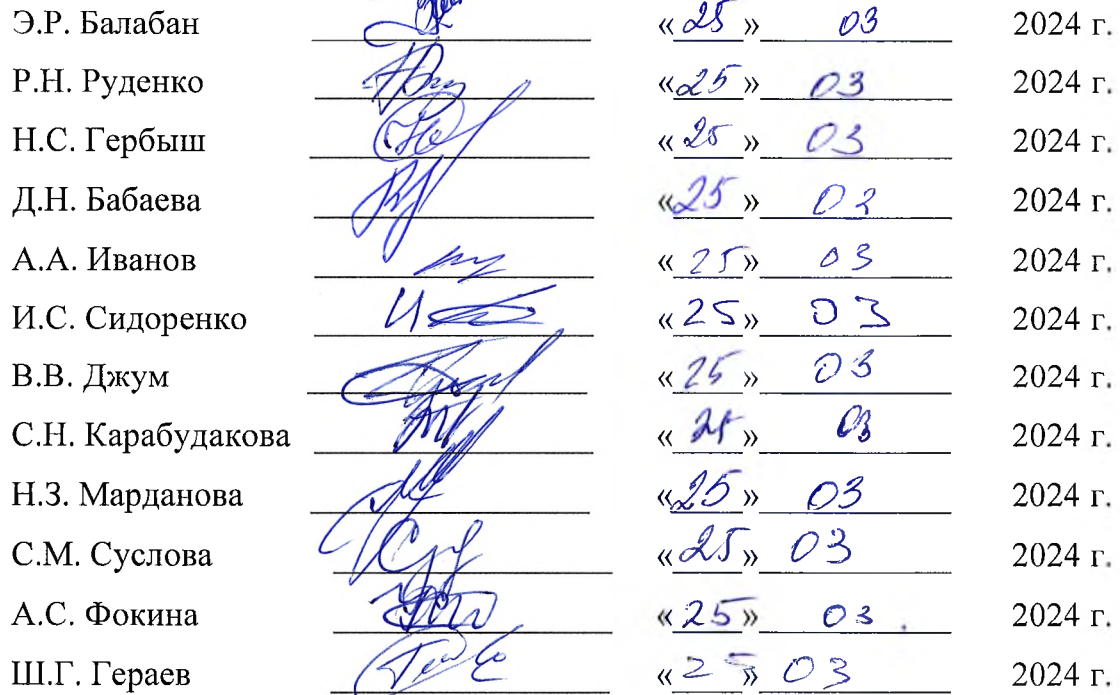 Э.Р. Балабан «25» 03 2024 г.
Р.Н. Руденко «25» 03 2024 г.
Н.С. Гербыш «25» 03 2024 г.
Д.Н. Бабаева «25» 03 2024 г.
А.А. Иванов «25» 03 2024 г.
И.С. Сидоренко «25» 03 2024 г.
В.В. Джум «25» 03 2024 г.
С.Н. Карабудакова «25» 03 2024 г.
Н.З. Марданова «25» 03 2024 г.
С.М. Суслова «25» 03 2024 г.
А.С. Фокина «25» 03 2024 г.
Ш.Г. Гераев «25» 03 2024 г.